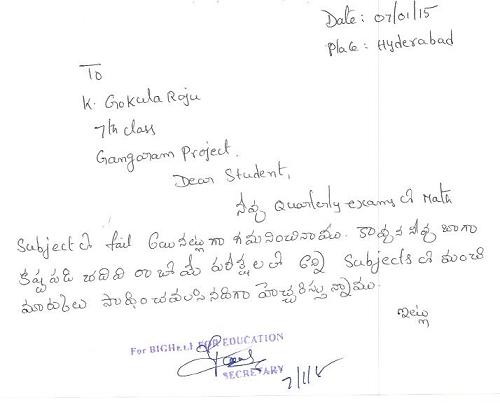 Date: 07/01/15
Place: Hyderabad
To
K. Gokula Raju
7th class
Gangaram Project.
Dear Student,
నీవు Quarterly exams లో Math
Subject లో fail అయినట్లుగా గమనించినాము. కావున నీవు బాగా
కష్టపడి చదివి రాబోయే పరీక్షలలో అన్ని Subjects లో మంచి
మార్కులు సాధించవలసినదిగా హెచ్చరిస్తున్నాము.
ఇట్లు
For BIGHELP FOR EDUCATION
SECRETARY
7/1/15